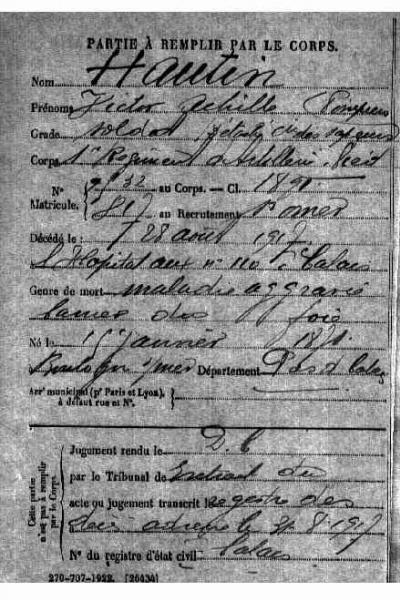 PARTIE À REMPLIR PAR LE CORPS.
Nom Hautin
Prénoms Victor Achille
Grade soldat
Corps 1er Régiment d'Artillerie
N° 9132 au Corps. — Cl. 1891
Matricule. 817 au Recrutement St Omer
Décédé le : 28 août 1917
à Hôpital aux n° 110 Calais
Genre de mort maladie aggravé
cancer du foie
Né le janvier 1871
Boulogne s/mer Département Pas d Calais
Arrt municipal (pr Paris et Lyon),
à défaut rue et N°.
Cette partie
n'est pas à remplir
par le Corps.
Jugement rendu le D. C
par le Tribunal de Extrait du
acte ou jugement transcrit le registre des
décès adressé le 31.8.1917
N° du registre d'état civil Calais
270-707-1922. [26434]